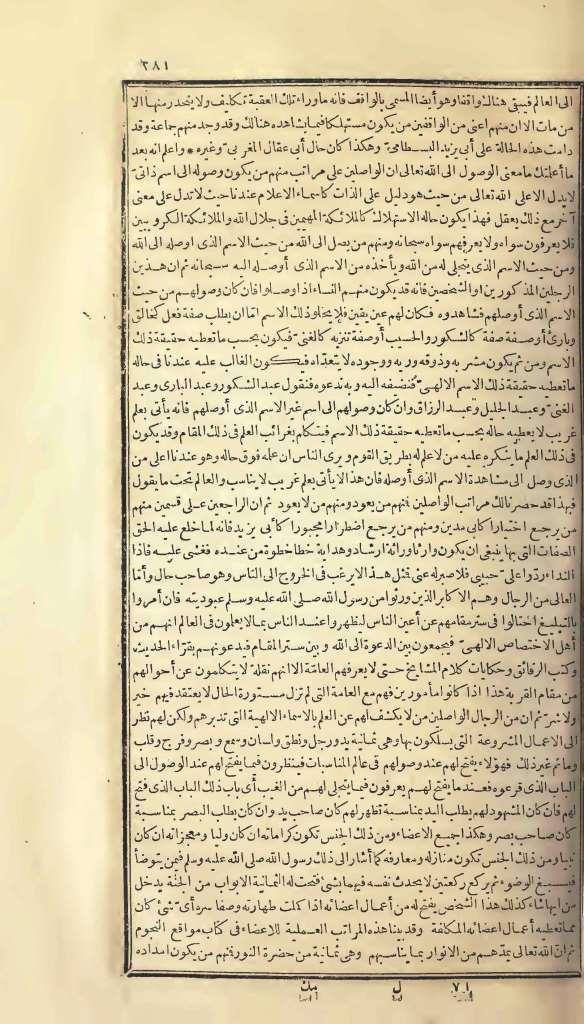 ٢٨١
الى العالم فيبقى هنالك واقفا وهو أيضا المسمى بالواقف فانه ما وراء تلك العقبة تكليف ولا ينحدر منها الا
من مات الا ان منهم اعنى من الواقفين من يكون مستهلكا فيما يشاهده هنالك وقد وجد منهم جماعة وقد
دامت هذه الحالة على أبى يزيد البسطامى وهكذا كان حال أبى عقال المغربى وغيره * واعلم انه بعد
ما أعلمتك ما معنى الوصول الى الله تعالى ان الواصلين على مراتب منهم من يكون وصوله الى اسم ذاتى
لا يدل الا على الله تعالى من حيث هو دليل على الذات كأسماء الاعلام عندنا حيث لا تدل على معنى
آخر مع ذلك يعقل فهذا يكون حاله الاستهلاك كالملائكة المهيمين فى جلال الله والملائكة الكروبيين
فلا يعرفون سواه ولا يعرفهم سواه سبحانه ومنهم من يصل الى الله من حيث الاسم الذى اوصله الى الله
ومن حيث الاسم الذى يتجلى له من الله ويأخذه من الاسم الذى أوصله اليه سبحانه ثم ان هذين
الرجلين المذكورين او الشخصين فانه قد يكون منهم النساء اذا وصلوا فان كان وصولهم من حيث
الاسم الذى أوصلهم فشاهدوه فكان لهم عين يقين فلا يخلو ذلك الاسم اما ان يطلب صفة فعل كخالق
وبارئ أو صفة صفة كالشكور والحسيب أو صفة تنزيه كالغنى فيكون بحسب ما تعطيه حقيقة ذلك
الاسم ومن ثم يكون مشربه وذوقه وريه ووجوده لا يتعداه فيكون الغالب عليه عندنا فى حاله
ما تعطيه حقيقة ذلك الاسم الالهى فنضيفه اليه وبه ندعوه فنقول عبد الشكور وعبد البارى وعبد
الغنى وعبد الجليل وعبد الرزاق وان كان وصولهم الى اسم غير الاسم الذى أوصلهم فانه يأتى بعلم
غريب لا يعطيه حاله بحسب ما تعطيه حقيقة ذلك الاسم فيتكلم بغرائب العلم فى ذلك المقام وقد يكون
فى ذلك العلم ما ينكره عليه من لا علم له بطريق القوم ويرى الناس ان علمه فوق حاله وهو عندنا اعلى من
الذى وصل الى مشاهدة الاسم الذى أوصله فان هذا لا يأتى بعلم غريب لا يناسب والعالم تحت ما يقول
فبهذا قد حصرنا لك مراتب الواصلين فمنهم من يعود ومنهم من لا يعود ثم ان الراجعين على قسمين منهم
من يرجع اختيارا كأبى مدين ومنهم من يرجع اضطرارا مجبورا كأبى يزيد فانه لما خلع عليه الحق
الصفات التى بها ينبغى ان يكون وارثا وراثة ارشاد وهداية خطا خطوة من عنده فغشى عليه فاذا
النداء ردوا على حبيبى فلا صبر له عنى فمثل هذا لا يرغب فى الخروج الى الناس وهو صاحب حال وأما
العالى من الرجال وهم الاكابر الذين ورثوا من رسول الله صلى الله عليه وسلم عبوديته فان أمروا
بالتبليغ احتالوا فى ستر مقامهم عن أعين الناس ليظهروا عند الناس بما لا يعلمون فى العالم انهم من
أهل الاختصاص الالهى فيجمعون بين الدعوة الى الله وبين ستر المقام فيدعونهم بقراءة الحديث
وكتب الرقائق وحكايات كلام المشايخ حتى لا يعرفهم العامة الا انهم نقلة لا يتكلمون عن أحوالهم
من مقام القربة هذا اذا كانوا مأمورين فهم مع العامة التى لم تزل مستورة الحال لا يعتقد فيهم خير
ولا شر ثم ان من الرجال الواصلين من لا يكشف لهم عن العلم بالاسماء الالهية التى تدبرهم ولكن لهم نظر
الى الاعمال المشروعة التى يسلكون بها وهى ثمانية يد ورجل وبطن ولسان وسمع وبصر وفرج وقلب
وما ثم غير ذلك فهؤلاء يفتح لهم عند وصولهم فى عالم المناسبات فينظرون فيما يفتح لهم عند الوصول الى
الباب الذى قرعوه فعند ما يفتح لهم يعرفون فيما يتجلى لهم من الغيب أى باب ذلك الباب الذى فتح
لهم فان كان المشهود لهم يطلب اليد بمناسبة تظهر لهم كان صاحب يد وان كان يطلب البصر بمناسبة
كان صاحب بصر وهكذا جميع الاعضاء ومن ذلك الجنس تكون كراماته ان كان وليا ومعجزاته ان كان
نبيا ومن ذلك الجنس تكون منازله ومعارفه كما أشار الى ذلك رسول الله صلى الله عليه وسلم فيمن يتوضأ
فيسبغ الوضوء ثم يركع ركعتين لا يحدث نفسه فيهما بشئ فتحت له الثمانية الابواب من الجنة يدخل
من أيها شاء كذلك هذا الشخص يفتح له من أعمال اعضائه اذا كملت طهارته وصفا سره أى شئ كان
بما تعطيه أعمال اعضائه المكلفة وقد بينا هذه المراتب العملية للاعضاء فى كتاب مواقع النجوم
ثم ان الله تعالى يمدهم من الانوار بما يناسبهم وهى ثمانية من حضرة النور فمنهم من يكون امداده
٧١ ل مك